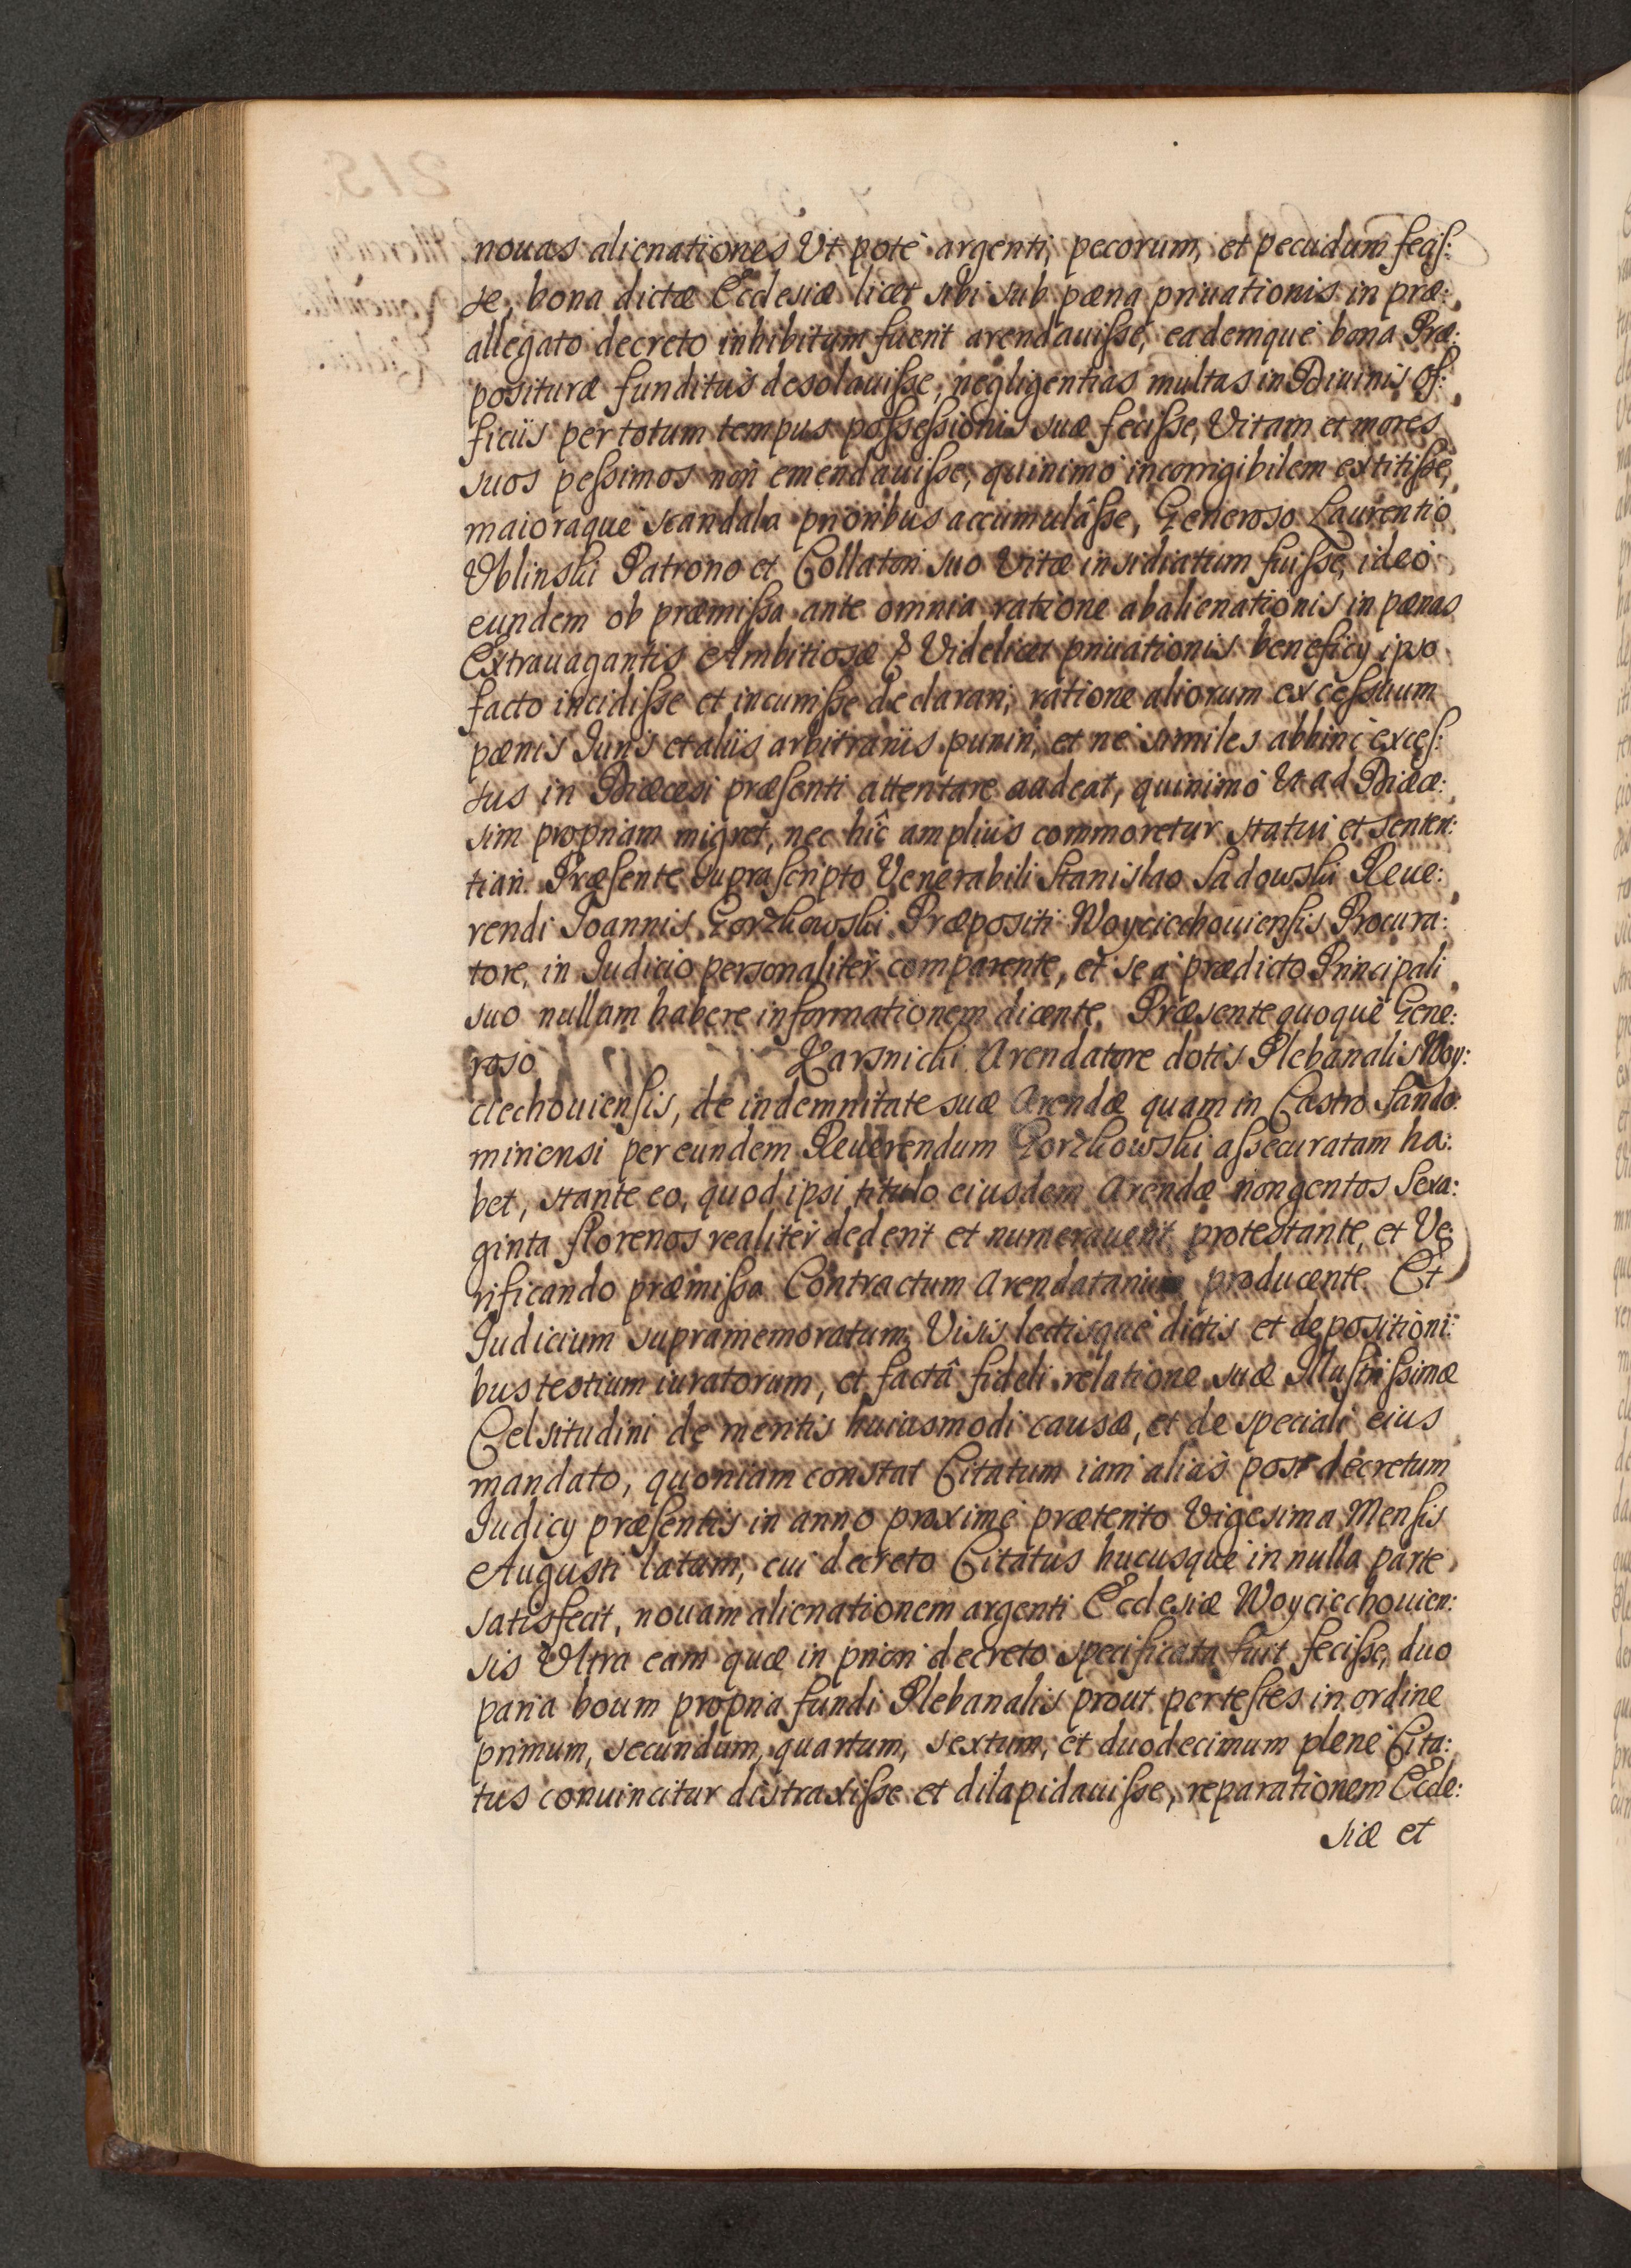 nouas alienationes Vt pote argenti, pecorum, et pecudum fecis:
se, bona dictæ Ecclesiæ licet sibi sub pæna priuationis in præ:
allegato decreto inhibitum fuerit arendauisse, eademque bona Præ:
posituræ funditus desolauisse, negligentias multas in Diuinis Of:
ficiis per totum tempus possessionis suæ fecisse, Vitam et mores
suos pessimos non emendauisse, quinimo incorrigibilem extitisse,
maioraque scandala prioribus accumulâsse, Generoso Laurentio
Vblinski Patrono et Collatori suo Vitæ insidiatum fuisse, ideo
eundem ob præmissa ante omnia ratione abalienationis in pænas
Extrauagantis Ambitiosæ & Videlicet priuationis beneficij ipso
facto incidisse et incurrisse declarari, ratione aliorum excessuum
pænis Iuris et aliis arbitrariis puniri, et ne similes abhinc exces:
sus in Diæcesi præsenti attentare audeat, quinimo Vt ad Diæce:
sim propriam migret, nec hîc amplius commoretur statui et senten:
tiari. Præsente suprascripto Venerabili Stanislao Sadowski Reue:
rendi Ioannis Gorzkowski Præpositi Woyciechouiensis Procura:
tore, in Iudicio personaliter comparente, et se a prædicto Principali
suo nullam habere informationem dicente. Præsente quoque Gene:
roso Karsnicki Arendatore dotis Plebanalis Woy:
ciechouiensis, de indemnitate suæ Arendæ quam in Castro Sando:
miriensi per eundem Reuerendum Gorzkowski assecuratam ha:
bet, stante eo, quod ipsi titulo eiusdem Arendæ nongentos Sexa:
ginta florenos realiter dederit et numerauerit protestante, et Ve:
rificando præmissa Contractum Arendatarium producente. Et
Iudicium supramemoratum, Visis lectisque dictis et depositioni:
bus testium iuratorum, et factâ fideli relatione suæ Illustrissimæ
Celsitudini de meritis huiusmodi causæ, et de speciali eius
mandato, quoniam constat Citatum iam alias post decretum
Iudicij præsentis in anno proxime præterito Vigesima Mensis
Augusti latam, cui decreto Citatus hucusque in nulla parte
satisfecit, nouam alienationem argenti Ecclesiæ Woyciechouien:
sis Vltra eam quæ in priori decreto specificata fuit fecisse, duo
paria boum propria fundi Plebanalis prout per testes in ordine
primum, secundum, quartum, sextum, et duodecimum plene Cita:
tus conuincitur distraxisse et dilapidauisse, reparationem Eccle:
siæ et